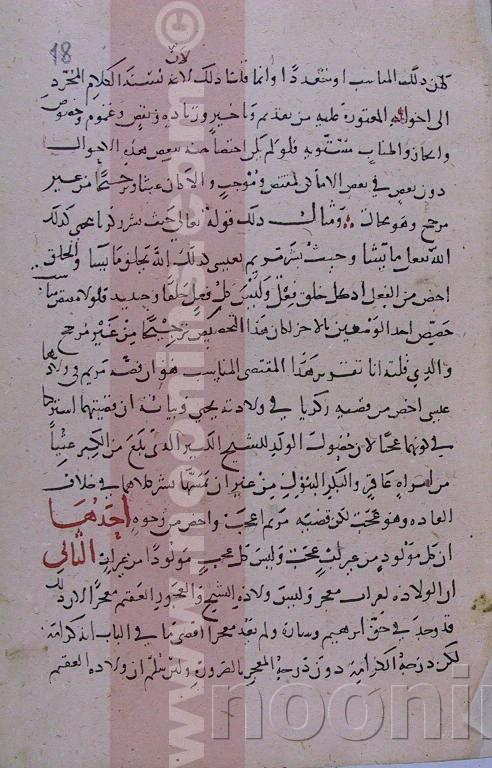 18
لان
لمن ذلك المناسب او متعددا وانما قلنا ذلك لانه نسبة الكلام المجرد
الى احواله المعتورة عليه من تقديم وتاخير وزيادة ونقص وعموم وخصوص
وايجاز واطناب مستوية فلو لم يكن اختصاصه ببعض هذه الاحوال
دون بعض في بعض الاماكن لمقتض وموجب والا كان عبثا وترجيحا من غير
مرجح وهو محال ومثال ذلك قوله تعالى حيث بشر زكريا بيحيى كذلك
الله يفعل ما يشا وحيث بشر مريم بعيسى كذلك الله يخلق ما يشا والخلق
اخص من الفعل اذ كل خلق فعل وليس كل فعل خلقا فلولا مقتض مناسب
خصص احد الوضعين بالاخر لكان هذا التخصيص ترجيحا من غير مرجح
والذي قلته انا تقرير هذا المقتضى المناسب هو ان قصة مريم في ولادها
عيسى اخص من قصة زكريا في ولادته يحيى وبيانه ان قصتيهما اشتركتا
في كونهما عجبا لان حصول الولد للشيخ الكبير الذي بلغ من الكبر عتيا
من امراة عاقر وللبكر البتول من غير ان يمسها بشر كلاهما في خلاف
العادة وهو عجب لكن قصة مريم اعجب واخص من وجوه احدها
ان كل مولود من غير اب عجب وليس كل عجب مولودا من غير اب الثاني
ان الولادة لغير اب معجز وليس ولادة الشيخ والعجوز العقيم معجزا لان ذلك
قد وجد في حق ابرهيم وسارة ولم يعد معجزا اقصى ما في الباب انه كرامة
لكن درجة الكرامة دون درجة المعجز بالضرورة ولئن سلم ان ولادة العقيم
www.noonins.com ©
www.noonins.com
noonin